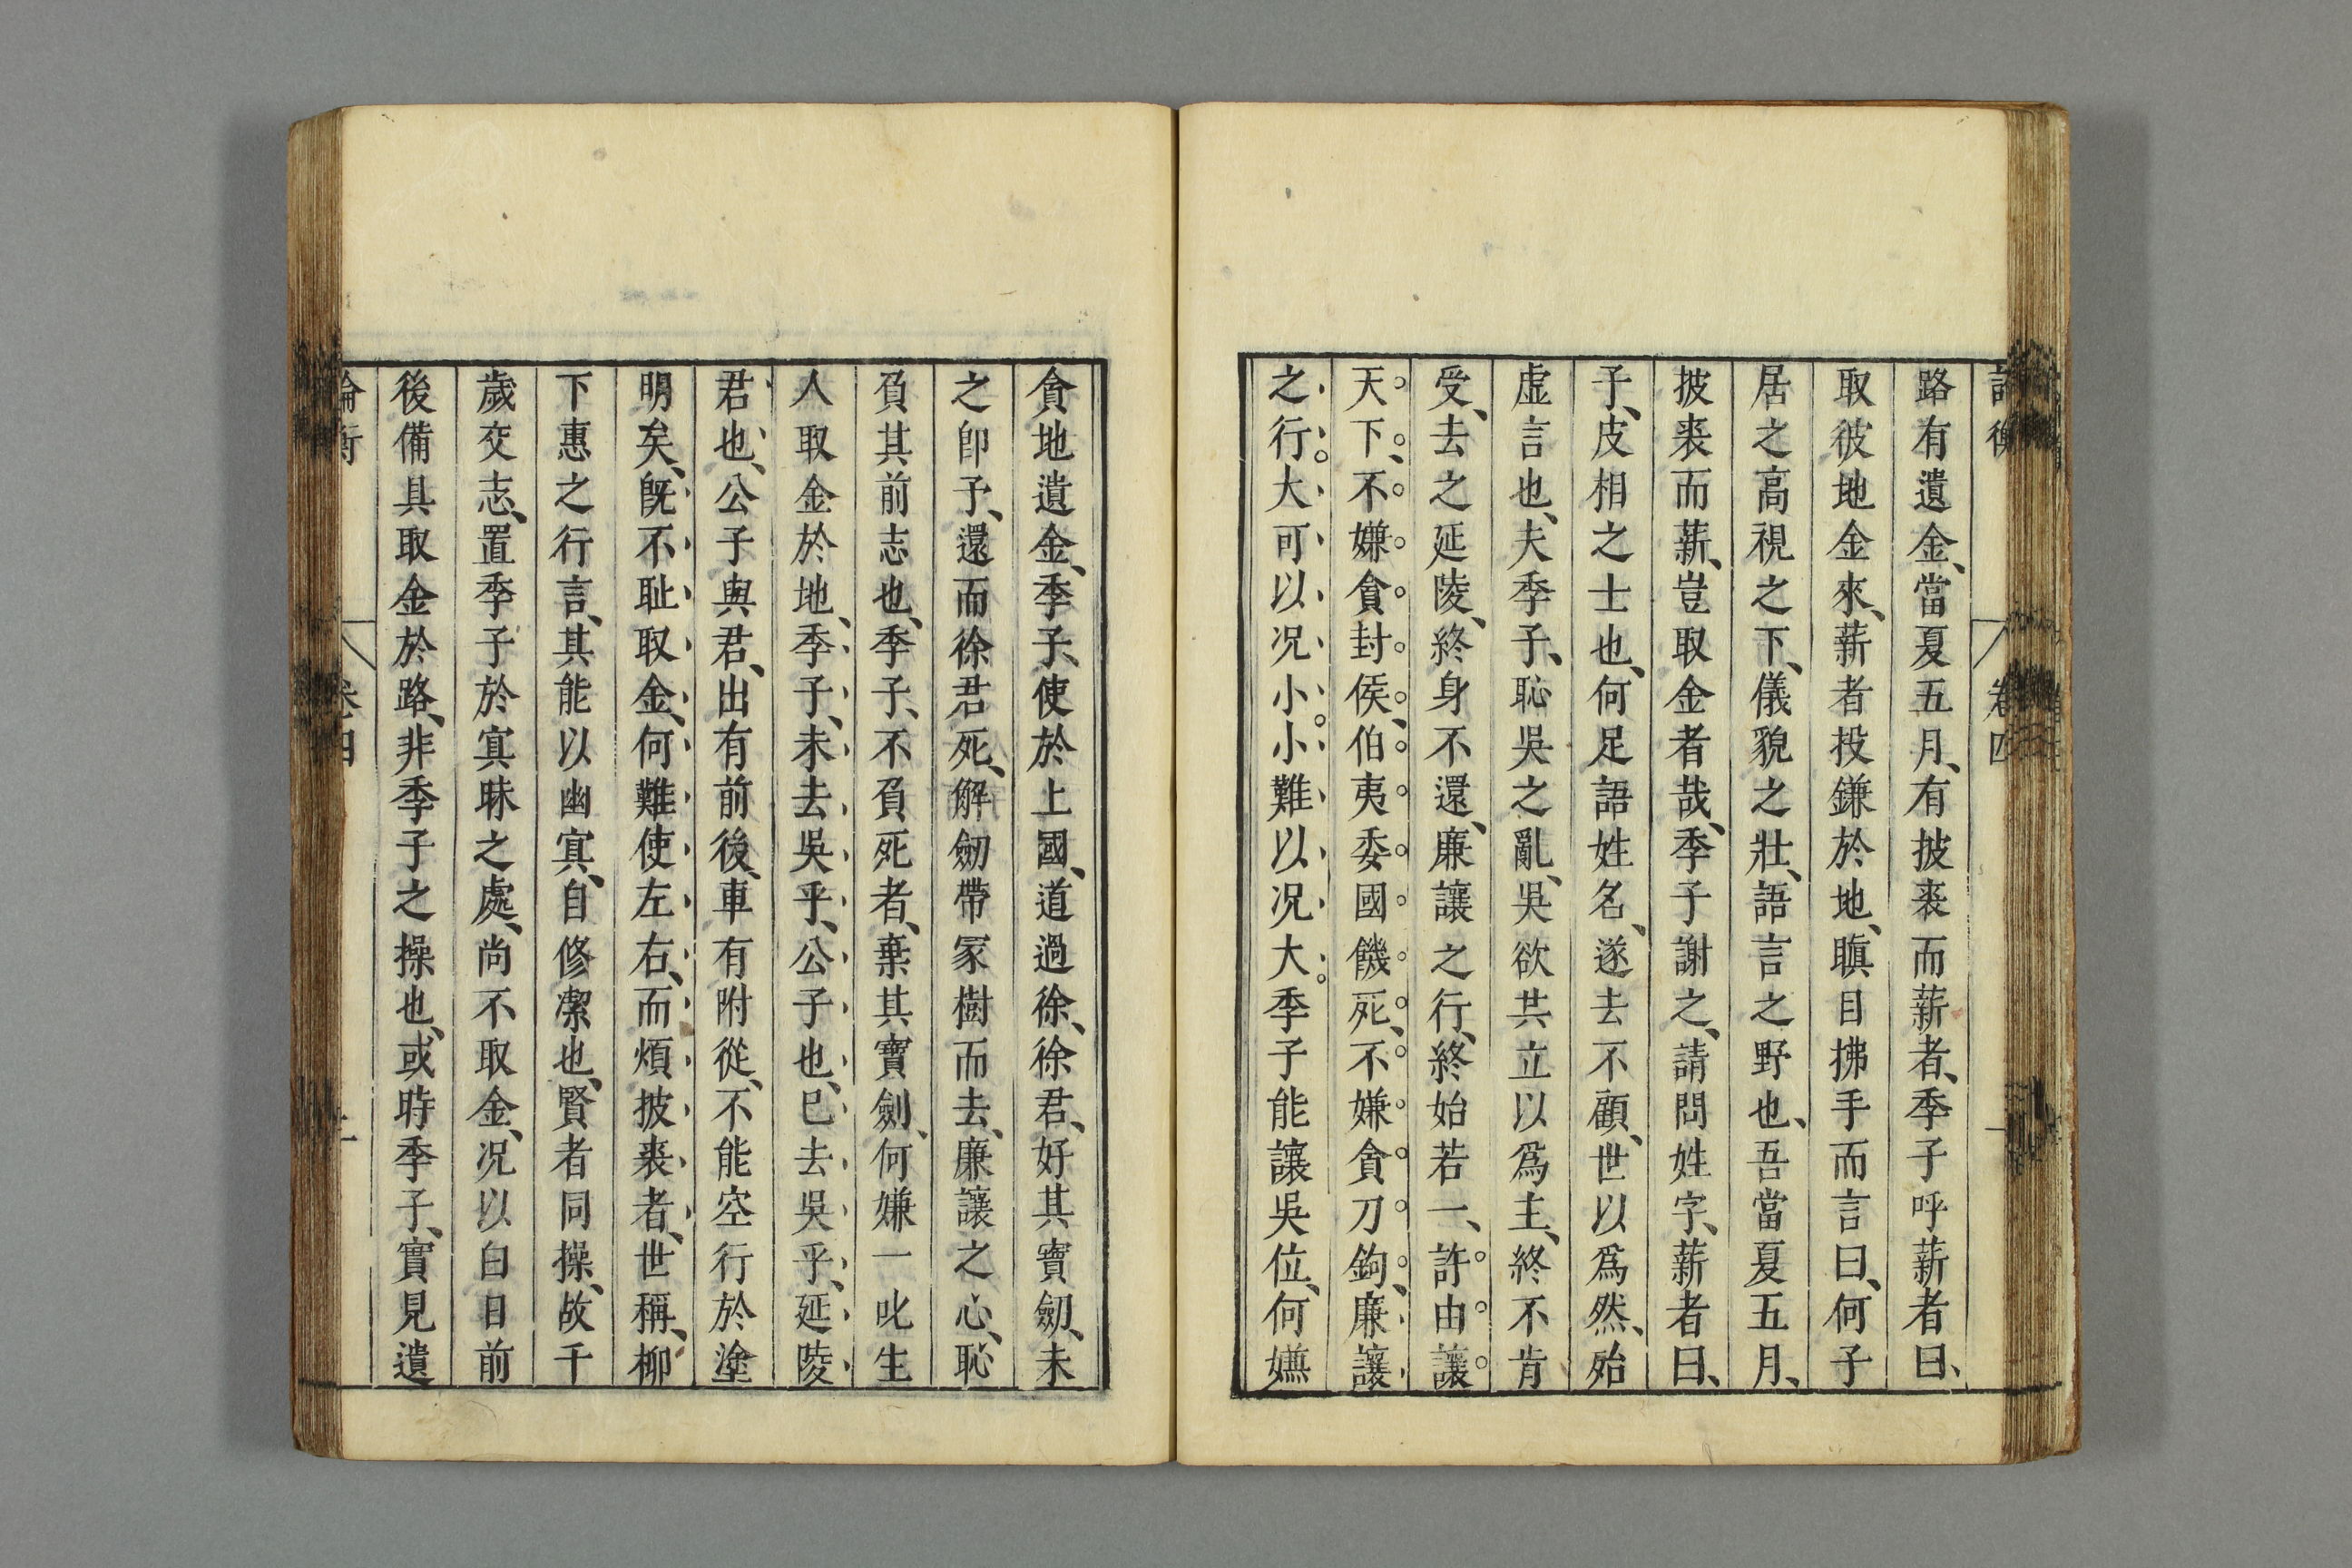 論衡 卷四 一
路有遺金、當夏五月、有披裘而薪者、季子呼薪者曰、
取彼地金來、薪者投鎌於地、瞋目拂手而言曰、何子
居之高視之下、儀貌之壯、語言之野也、吾當夏五月、
披裘而薪、豈取金者哉、季子謝之、請問姓字、薪者曰、
子、皮相之士也、何足語姓名、遂去不顧、世以爲然、殆
虛言也、夫季子、恥吳之亂、吳欲共立以爲主、終不肯
受、去之延陵、終身不還、廉讓之行、終始若一、許由讓
天下、不嫌貪封侯、伯夷委國饑死、不嫌貪刀鉤、廉讓
之行。大可以况小。小難以况大。季子能讓吳位、何嫌
貪地遺金、季子、使於上國、道過徐、徐君、好其寶劒、未
之卽予、還而徐君死、解劒帶冢樹而去、廉讓之心、恥
負其前志也、季子、不負死者、棄其寶劍、何嫌一叱生
人取金於地、季子、未去吳乎、公子也、已去吳乎、延陵
君也、公子與君、出有前後、車有附從、不能空行於塗
明矣、旣不耻取金、何難使左右、而煩披裘者、世稱、柳
下惠之行言、其能以幽冥、自修潔也、賢者同操、故千
歲交志、置季子於冥昧之處、尚不取金、况以白日前
後備具取金於路、非季子之操也、或時季子、實見遺
論衡 卷四